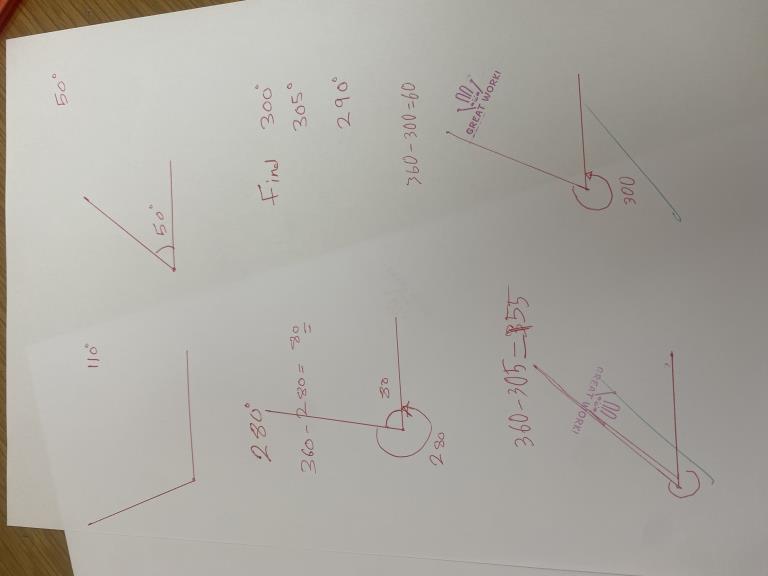 50°
110°
50°
280°
360 - 280 = 80
80
280
Find 300°
305°
290°
360 - 300 = 60
GREAT WORK!
300
360 - 305 = 55
GREAT WORK!